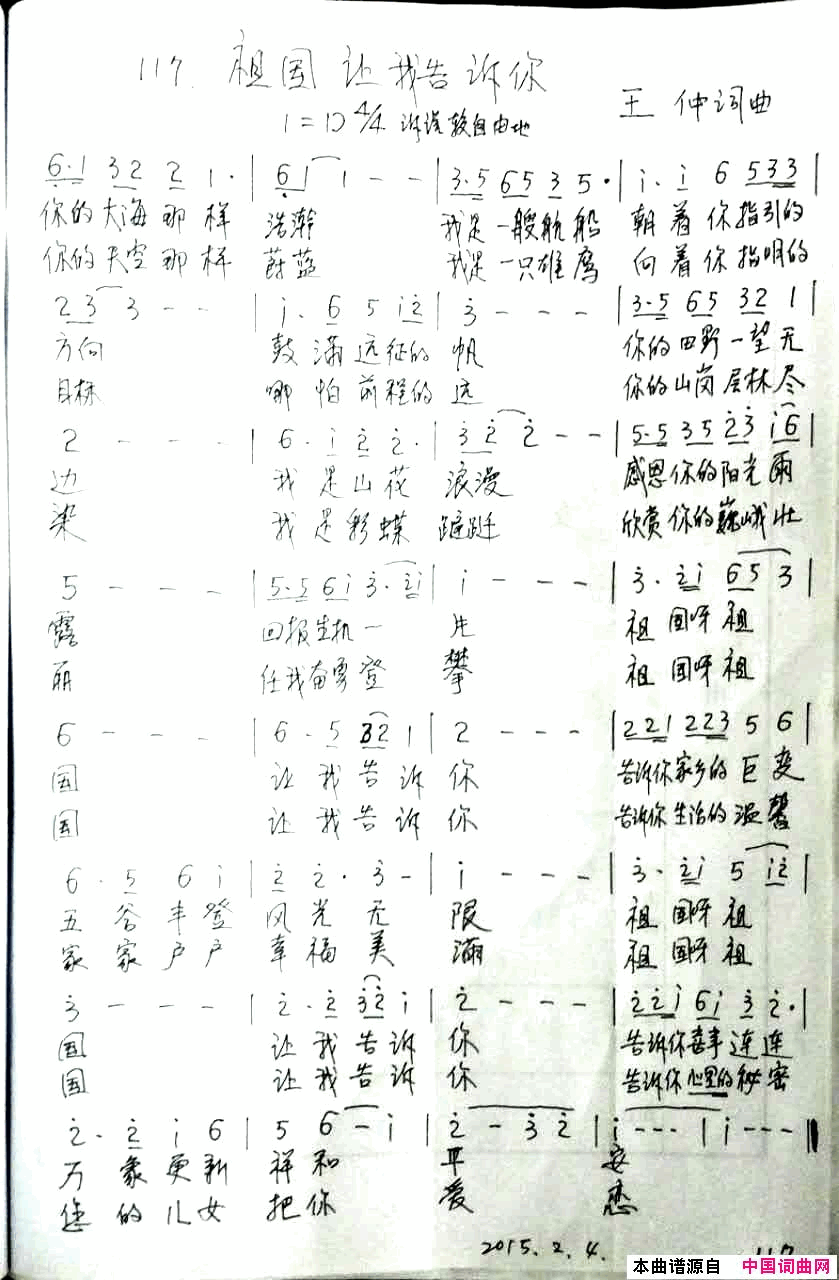 117. 祖国 让我告诉你
1=D 4/4 诉说 较自由地
王 仲词曲
6·1 3 2 2 1· | 6 1 1 - - | 3·5 6 5 3 5· | i· i 6 5 3 3 |
你的大海那样 浩瀚 我是一艘航船 朝着你指引的
你的天空那样 蔚蓝 我是一只雄鹰 向着你指明的
2 3 3 - - | i· 6 5 i 2 | 3 - - - | 3·5 6 5 3 2 1 |
方向 鼓满远征的 帆 你的田野一望无
目标 哪怕前程的 远 你的山岗层林尽
2 - - - | 6· i 2 2· | 3 2 2 - - | 5·5 3 5 2 3 i 6 |
边 我是山花 浪漫 感恩你的阳光雨
染 我是彩蝶 蹁跹 欣赏你的巍峨壮
5 - - - | 5·5 6 i 3· 2 i | i - - - | 3· 2 i 6 5 3 |
露 回报生机一 片 祖国呀祖
丽 任我奋勇登 攀 祖国呀祖
6 - - - | 6· 5 3 2 1 | 2 - - - | 2 2 1 2 2 3 5 6 |
国 让我告诉 你 告诉你家乡的巨变
国 让我告诉 你 告诉你生活的温馨
6· 5 6 i | 2 2· 3 - | i - - - | 3· 2 i 5 i 2 |
五谷丰登 风光无 限 祖国呀祖
家家户户 幸福美 满 祖国呀祖
3 - - - | 2· 2 3 2 i | 2 - - - | 2 2 i 6 i 3 2· |
国 让我告诉 你 告诉你喜事连连
国 让我告诉 你 告诉你心里的秘密
2· 2 i 6 | 5 6 - i | 2 - 3 2 | i - - - | i - - - ‖
万象更新 祥和 平 安
您的儿女 把你 爱 恋
2015. 2. 4.
117
本曲谱源自 中国词曲网